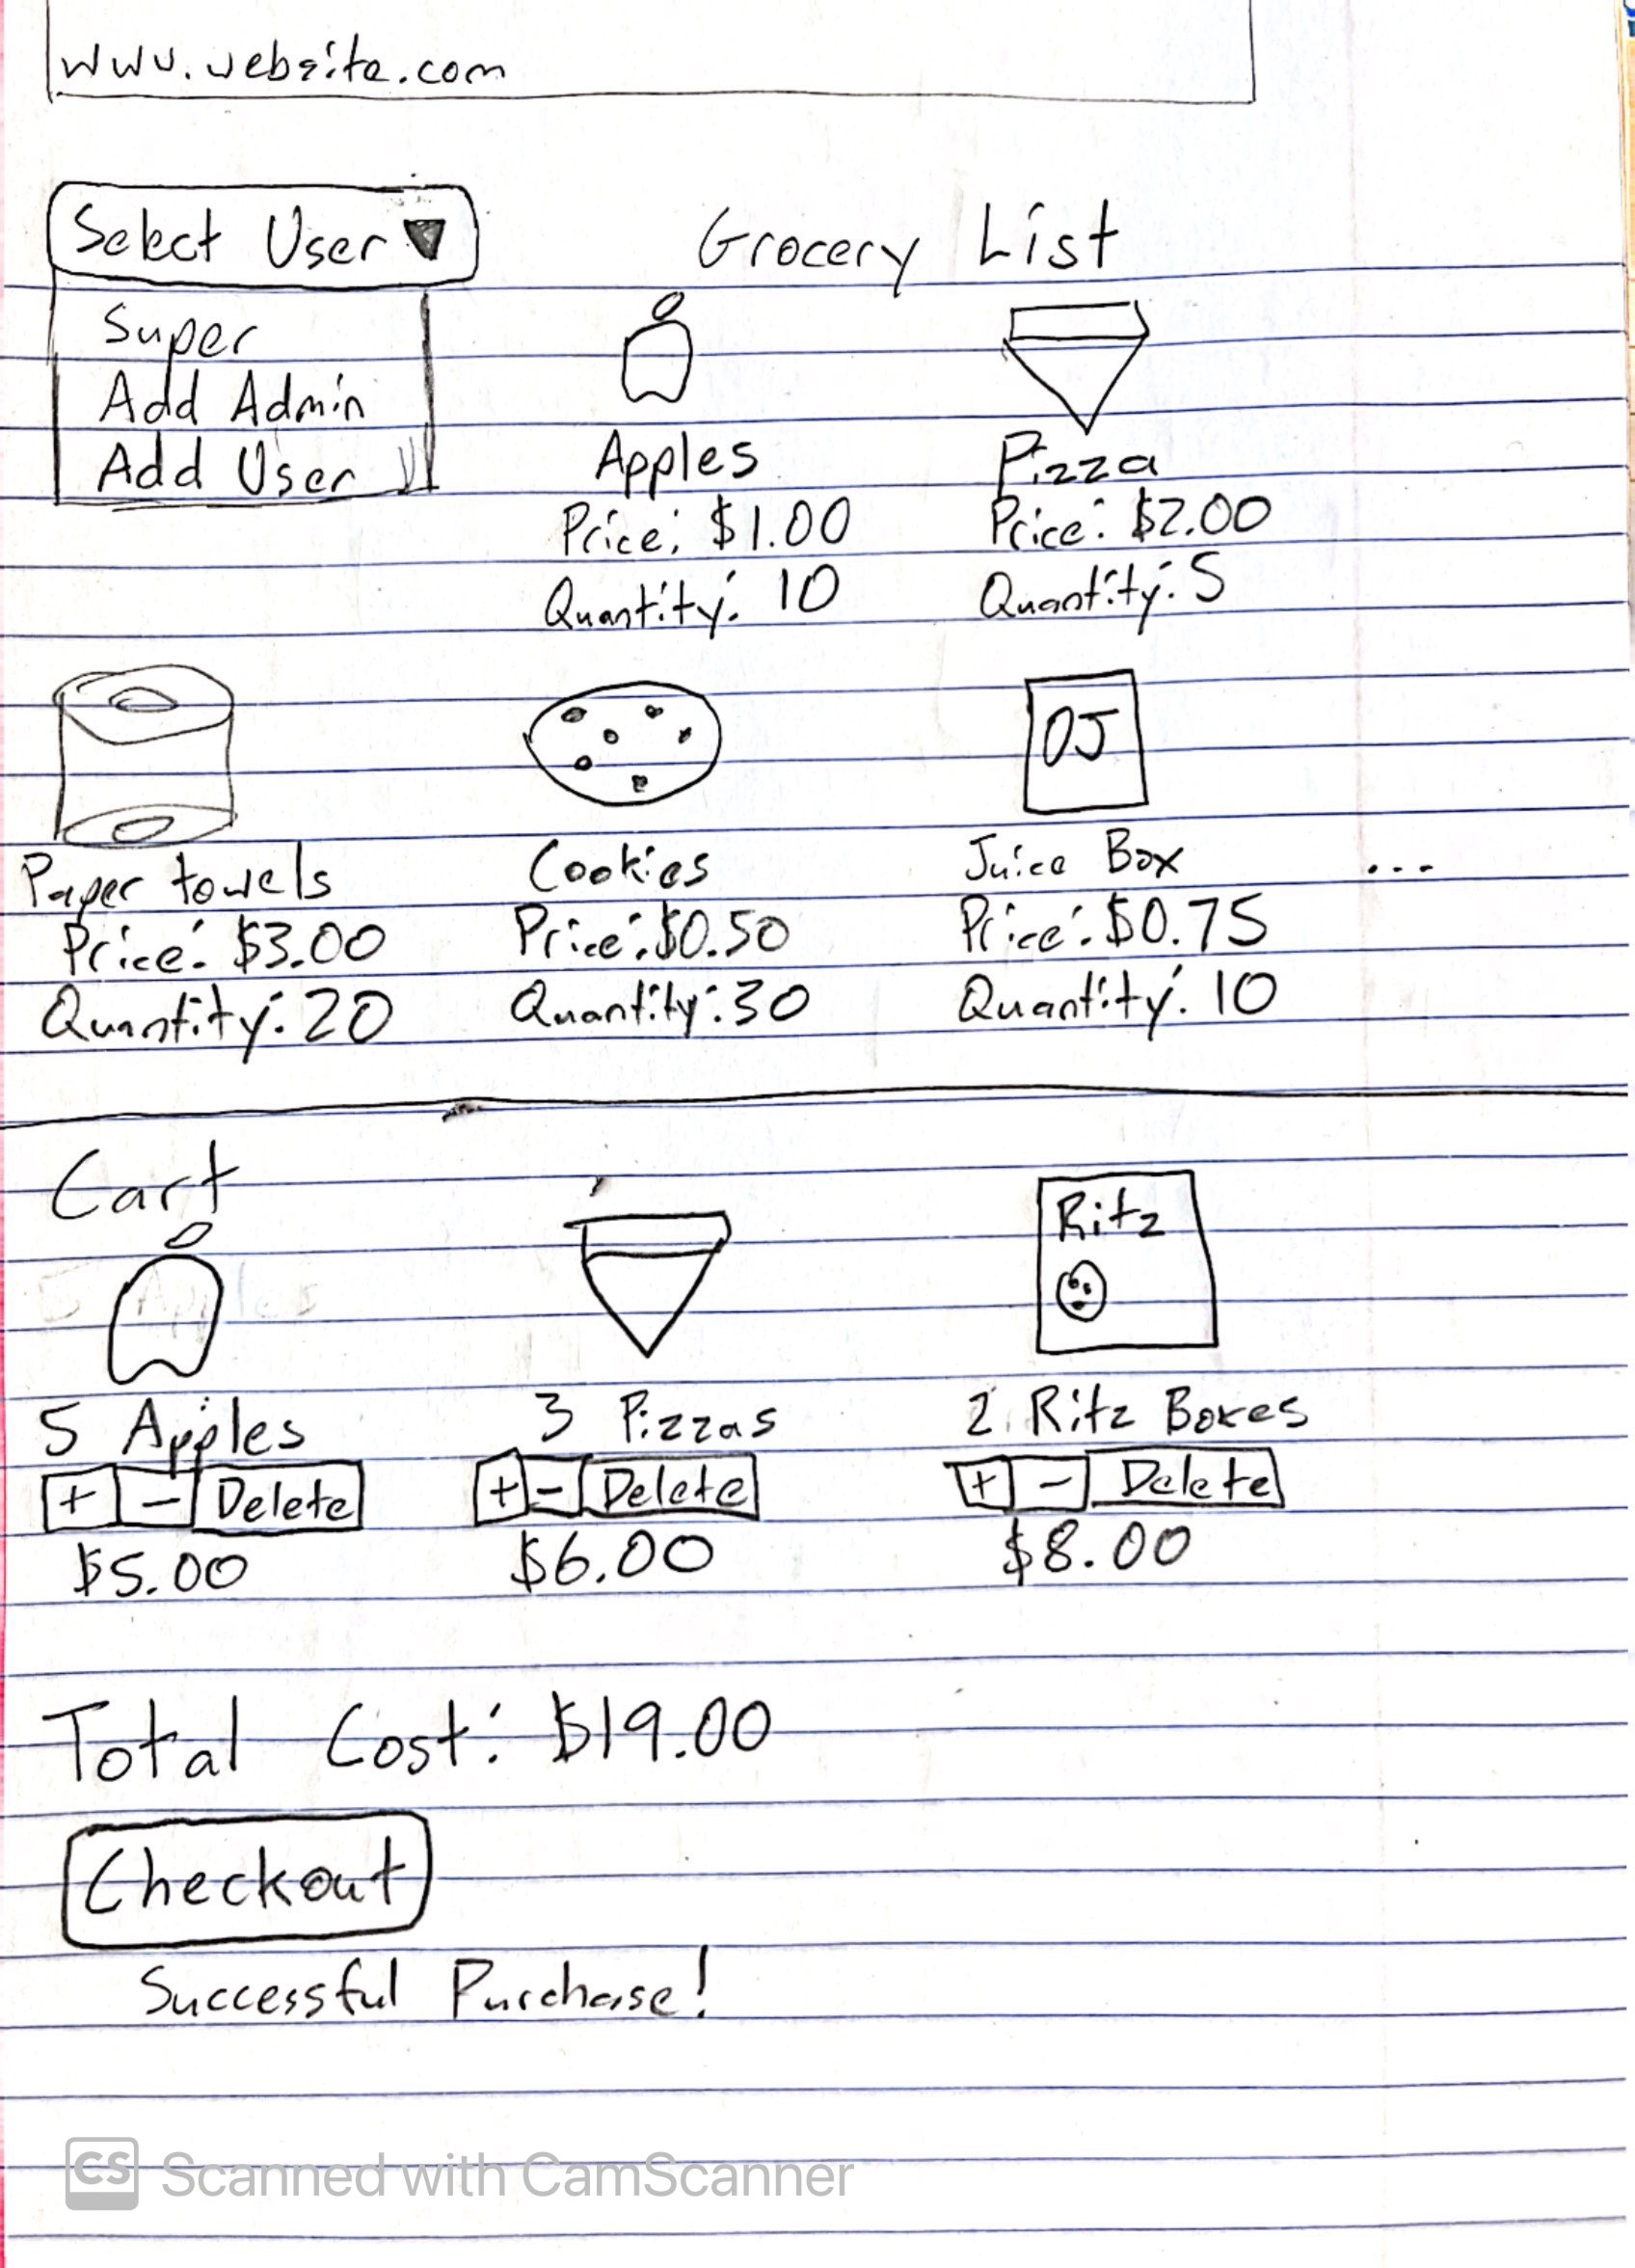 www.website.com
Select User ▼
Super
Add Admin
Add User
Grocery List
Apples
Price: $1.00
Quantity: 10
Pizza
Price: $2.00
Quantity: 5
Paper towels
Price: $3.00
Quantity: 20
Cookies
Price: $0.50
Quantity: 30
OJ
Juice Box
Price: $0.75
Quantity: 10
...
Cart
5 Apples
+ - Delete
$5.00
3 Pizzas
+ - Delete
$6.00
Ritz
2 Ritz Boxes
+ - Delete
$8.00
Total Cost: $19.00
Checkout
Successful Purchase!
CS Scanned with CamScanner